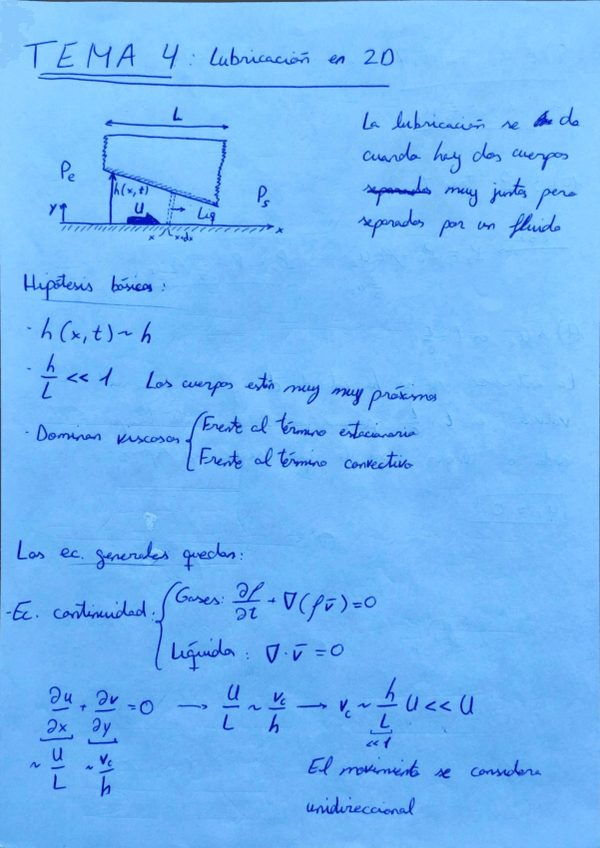 TEMA 4: Lubricación en 2D
L
Pe
h(x,t)
Ps
y
U
Liq
x
x+dx
x
La lubricación se da
cuando hay dos cuerpos
muy juntos pero
separados por un fluido
Hipótesis básicas:
· h(x,t) ~ h
· h/L << 1 Los cuerpos están muy muy próximos
· Dominan viscosos { Frente al término estacionario
Frente al término convectivo
Las ec. generales quedan:
-Ec. continuidad: { Gases: ∂ρ/∂t + ∇(ρv̄)=0
Líquido: ∇·v̄ =0
∂u/∂x + ∂v/∂y = 0 → U/L ~ vc/h → vc ~ h/L U << U
~ U/L ~ vc/h <<1
El movimiento se considera
unidireccional